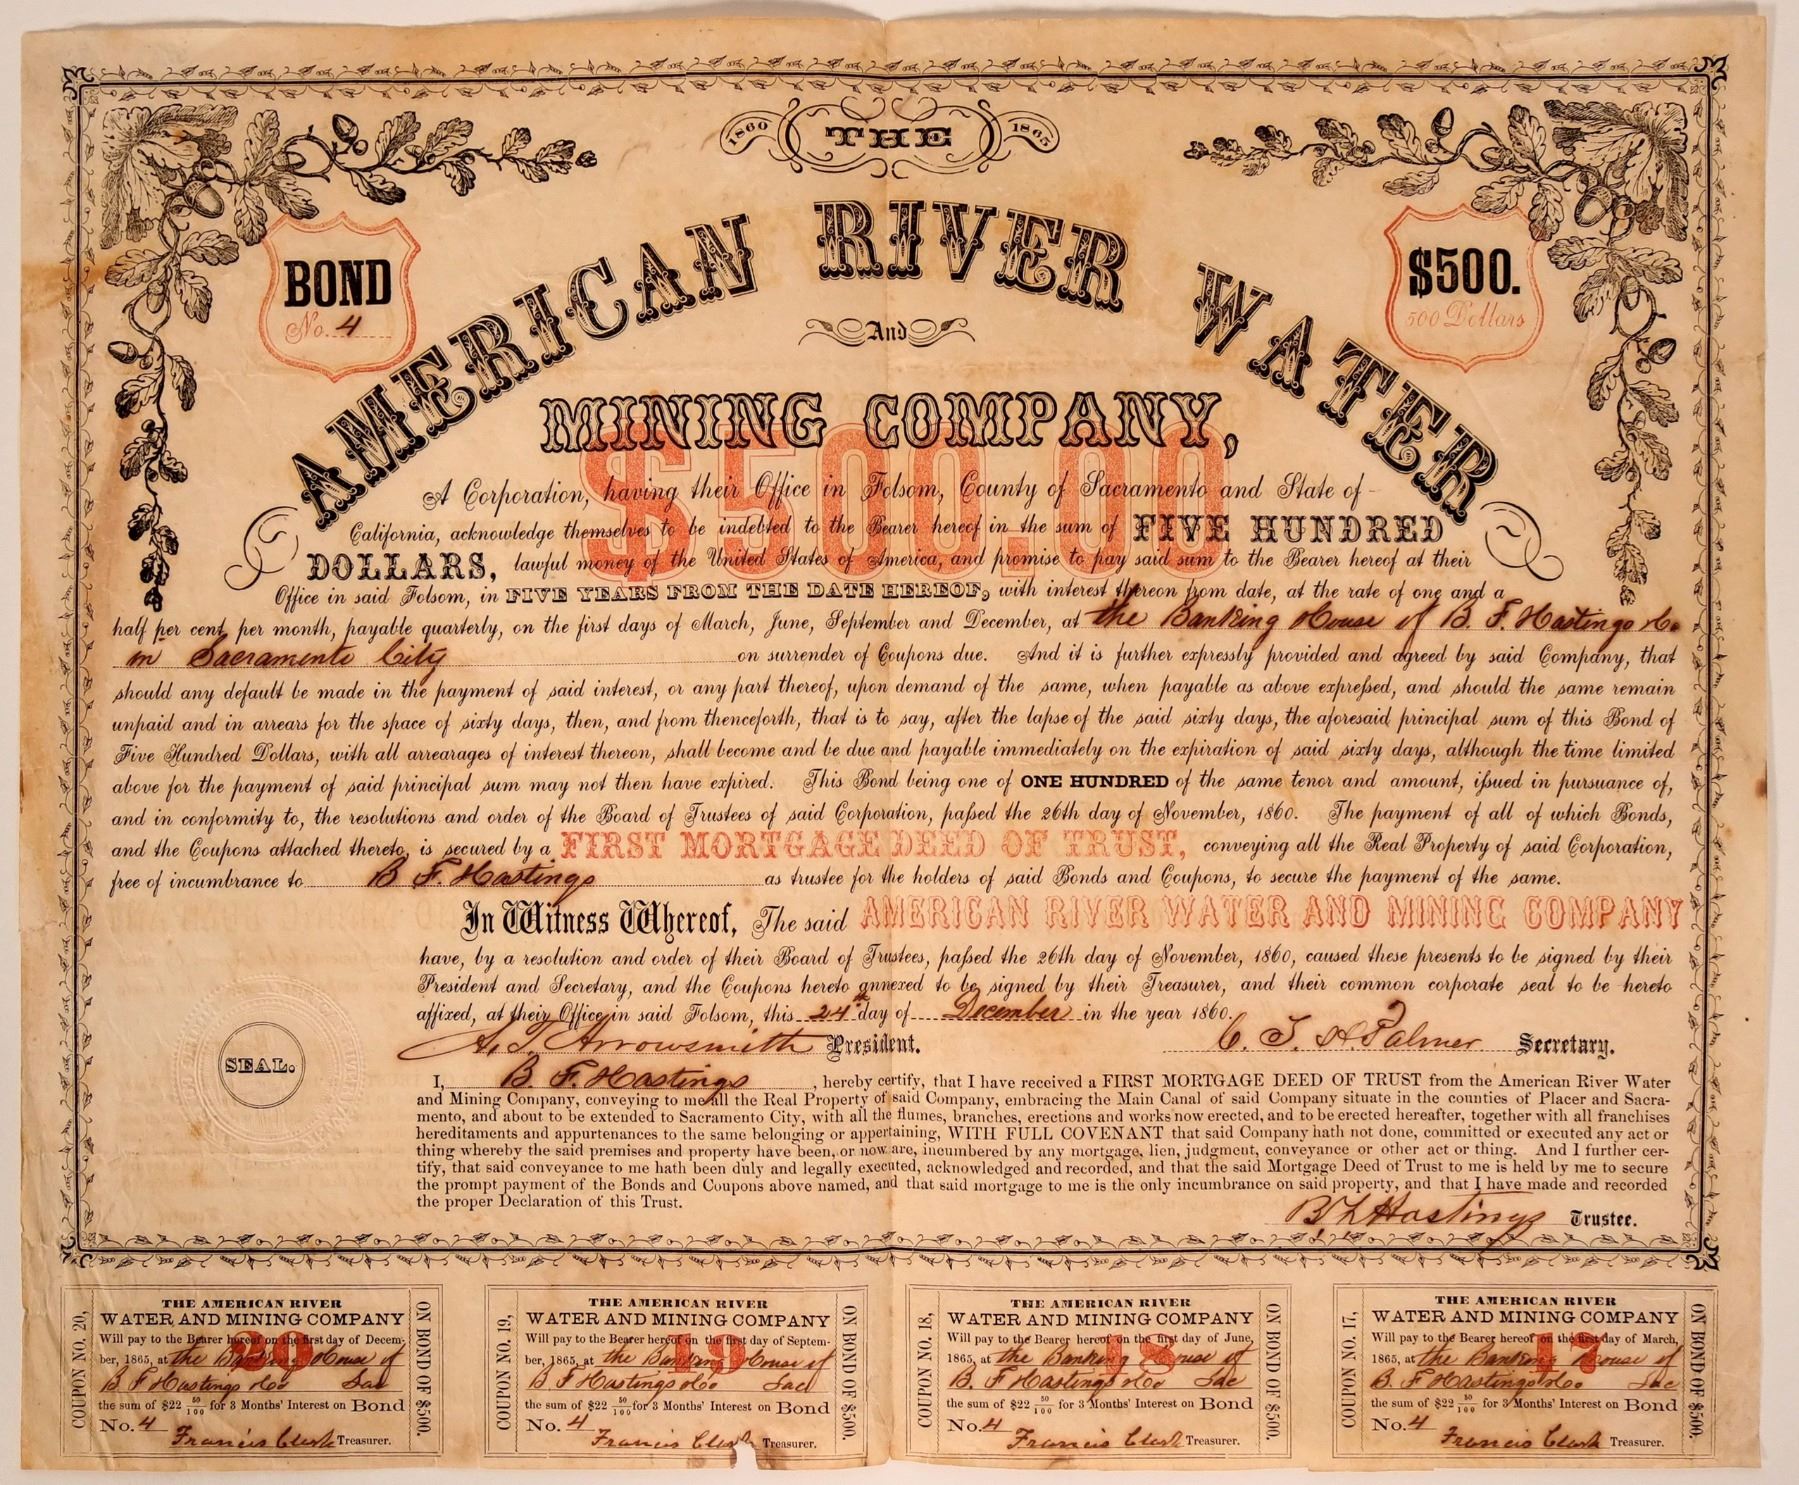 1860 THE 1865
BOND
No. 4
$500.
500 Dollars
AMERICAN RIVER WATER
And
MINING COMPANY,
$500.00
A Corporation, having their Office in Folsom, County of Sacramento and State of
California, acknowledge themselves to be indebted to the Bearer hereof in the sum of FIVE HUNDRED
DOLLARS, lawful money of the United States of America, and promise to pay said sum to the Bearer hereof at their
Office in said Folsom, in FIVE YEARS FROM THE DATE HEREOF, with interest thereon from date, at the rate of one and a
half per cent. per month, payable quarterly, on the first days of March, June, September and December, at the Banking House of B. F. Hastings & Co
in Sacramento City on surrender of Coupons due. And it is further expressly provided and agreed by said Company, that
should any default be made in the payment of said interest, or any part thereof, upon demand of the same, when payable as above expressed, and should the same remain
unpaid and in arrears for the space of sixty days, then, and from thenceforth, that is to say, after the lapse of the said sixty days, the aforesaid principal sum of this Bond of
Five Hundred Dollars, with all arrearages of interest thereon, shall become and be due and payable immediately on the expiration of said sixty days, although the time limited
above for the payment of said principal sum may not then have expired. This Bond being one of ONE HUNDRED of the same tenor and amount, issued in pursuance of,
and in conformity to, the resolutions and order of the Board of Trustees of said Corporation, passed the 26th day of November, 1860. The payment of all of which Bonds,
and the Coupons attached thereto, is secured by a FIRST MORTGAGE DEED OF TRUST, conveying all the Real Property of said Corporation,
free of incumbrance to B F. Hastings as trustee for the holders of said Bonds and Coupons, to secure the payment of the same.
In Witness Whereof, The said AMERICAN RIVER WATER AND MINING COMPANY
have, by a resolution and order of their Board of Trustees, passed the 26th day of November, 1860, caused these presents to be signed by their
President and Secretary, and the Coupons hereto annexed to be signed by their Treasurer, and their common corporate seal to be hereto
affixed, at their Office in said Folsom, this 24th day of December in the year 1860.
A. T. Arrowsmith President. C. T. H. Palmer Secretary.
SEAL.
I, B. F. Hastings, hereby certify, that I have received a FIRST MORTGAGE DEED OF TRUST from the American River Water
and Mining Company, conveying to me all the Real Property of said Company, embracing the Main Canal of said Company situate in the counties of Placer and Sacra-
mento, and about to be extended to Sacramento City, with all the flumes, branches, erections and works now erected, and to be erected hereafter, together with all franchises
hereditaments and appurtenances to the same belonging or appertaining, WITH FULL COVENANT that said Company hath not done, committed or executed any act or
thing whereby the said premises and property have been, or now are, incumbered by any mortgage, lien, judgment, conveyance or other act or thing. And I further cer-
tify, that said conveyance to me hath been duly and legally executed, acknowledged and recorded, and that the said Mortgage Deed of Trust to me is held by me to secure
the prompt payment of the Bonds and Coupons above named, and that said mortgage to me is the only incumbrance on said property, and that I have made and recorded
the proper Declaration of this Trust.
B F Hastings Trustee.
COUPON NO. 20,
THE AMERICAN RIVER
WATER AND MINING COMPANY
Will pay to the Bearer hereof on the first day of Decem-
ber, 1865, at the Banking House of
B F Hastings & Co Sac
the sum of $22 50/100 for 3 Months' Interest on Bond
No. 4 Francis Clark Treasurer.
ON BOND OF $500.
20
COUPON NO. 19,
THE AMERICAN RIVER
WATER AND MINING COMPANY
Will pay to the Bearer hereof on the first day of Septem-
ber, 1865, at the Banking House of
B F Hastings & Co Sac
the sum of $22 50/100 for 3 Months' Interest on Bond
No. 4 Francis Clark Treasurer.
ON BOND OF $500.
19
COUPON NO. 18,
THE AMERICAN RIVER
WATER AND MINING COMPANY
Will pay to the Bearer hereof on the first day of June,
1865, at the Banking House of
B. F Hastings & Co Sac
the sum of $22 50/100 for 3 Months' Interest on Bond
No. 4 Francis Clark Treasurer.
ON BOND OF $500.
18
COUPON NO. 17,
THE AMERICAN RIVER
WATER AND MINING COMPANY
Will pay to the Bearer hereof on the first day of March,
1865, at the Banking House of
B. F Hastings & Co Sac
the sum of $22 50/100 for 3 Months' Interest on Bond
No. 4 Francis Clark Treasurer.
ON BOND OF $500.
17